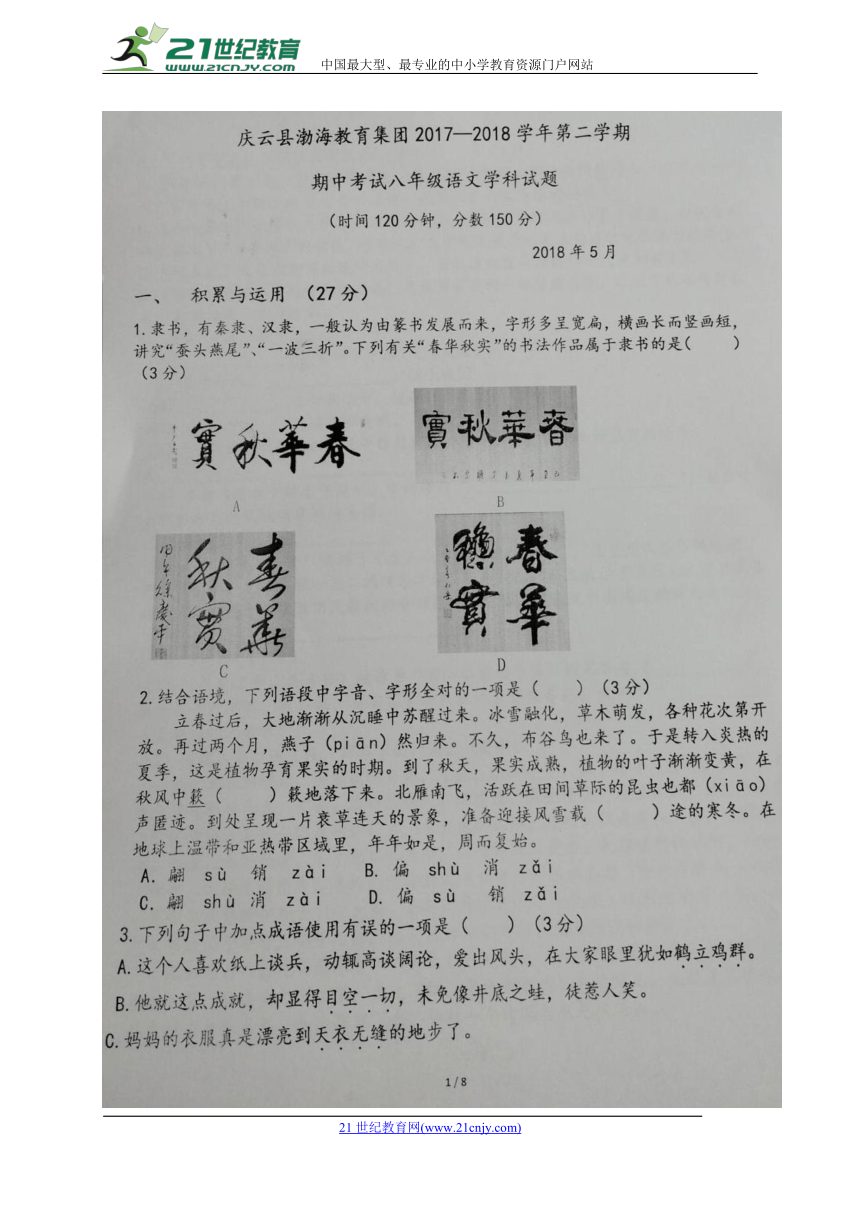 21世纪教育
WWW.21CNJY.COM
中国最大型、最专业的中小学教育资源门户网站
庆云县渤海教育集团2017—2018学年第二学期
期中考试八年级语文学科试题
（时间120分钟，分数150分）
2018年5月
一、 积累与运用 （27分）
1.隶书，有秦隶、汉隶，一般认为由篆书发展而来，字形多呈宽扁，横画长而竖画短，
讲究“蚕头燕尾”、“一波三折”。下列有关“春华秋实”的书法作品属于隶书的是（ ）
（3分）
實秋華春
實秋華春
A
B
秋實 春華
春華
實
C
D
2.结合语境，下列语段中字音、字形全对的一项是（ ）（3分）
立春过后，大地渐渐从沉睡中苏醒过来。冰雪融化，草木萌发，各种花次第开
放。再过两个月，燕子（piān）然归来。不久，布谷鸟也来了。于是转入炎热的
夏季，这是植物孕育果实的时期。到了秋天，果实成熟，植物的叶子渐渐变黄，在
秋风中簌（ ）簌地落下来。北雁南飞，活跃在田间草际的昆虫也都（xiāo）
声匿迹。到处呈现一片衰草连天的景象，准备迎接风雪载（ ）途的寒冬。在
地球上温带和亚热带区域里，年年如是，周而复始。
A. 翩 sù 销 zài B. 偏 shù 消 zǎi
C. 翩 shù 消 zài D. 偏 sù 销 zǎi
3.下列句子中加点成语使用有误的一项是（ ）（3分）
A.这个人喜欢纸上谈兵，动辄高谈阔论，爱出风头，在大家眼里犹如鹤立鸡群。
B.他就这点成就，却显得目空一切，未免像井底之蛙，徒惹人笑。
C.妈妈的衣服真是漂亮到天衣无缝的地步了。
1 / 8
21世纪教育网(www.21cnjy.com)